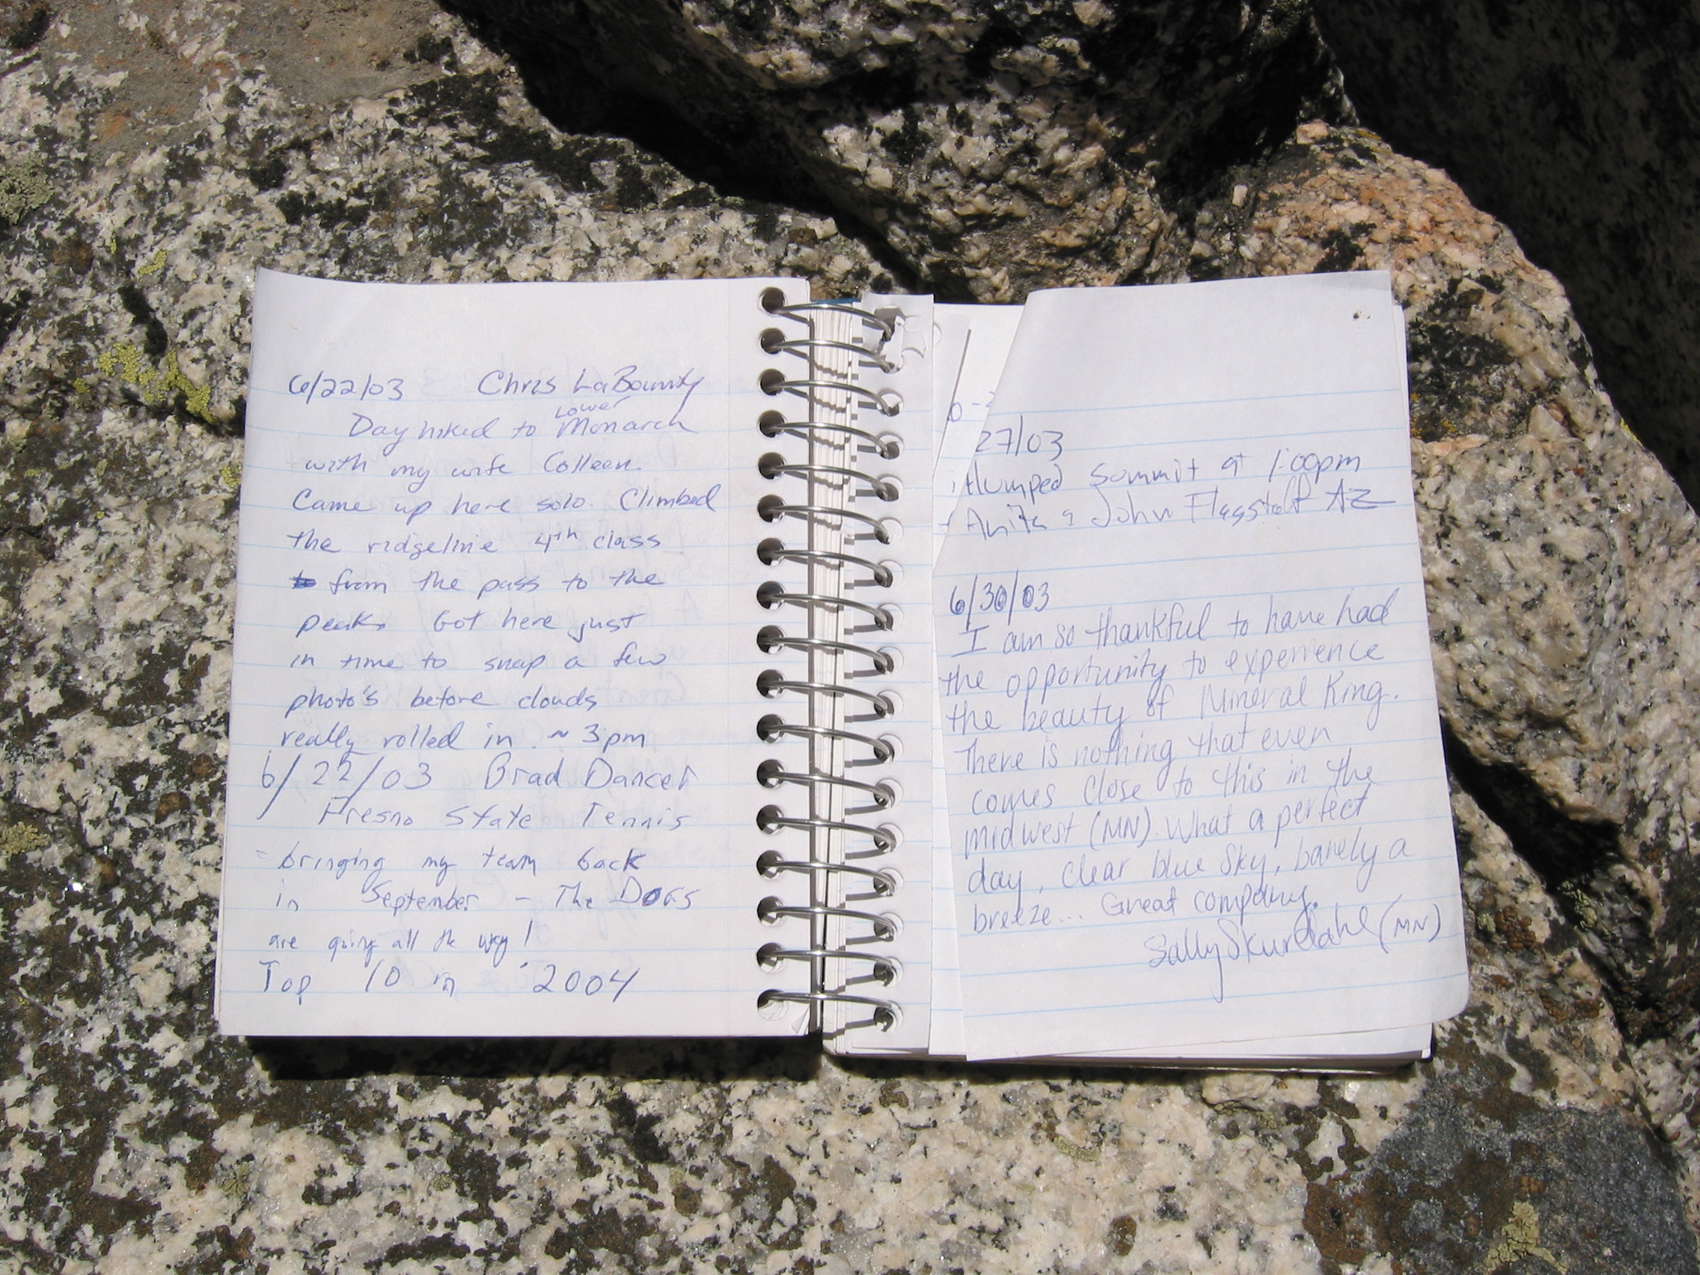 6/22/03 Chris LaBounty
Day hiked to Lower Monarch
with my wife Colleen.
Came up here solo. Climbed
the ridgeline 4th class
from the pass to the
peak. Got here just
in time to snap a few
photo's before clouds
really rolled in. ~ 3pm
6/22/03 Brad Dancer
Fresno State Tennis
- bringing my team back
in September - The DOGS
are going all the way!
Top 10 in '2004
27/03
Summit at 1:00pm
Anita & John Flagstaff AZ
6/30/03
I am so thankful to have had
the opportunity to experience
the beauty of Mineral King.
There is nothing that even
comes close to this in the
midwest (MN). What a perfect
day, clear blue sky, barely a
breeze... Great company.
Sally Skurdahl (MN)